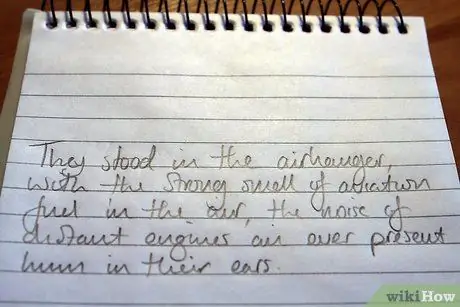 They stood in the airhanger,
with the strong smell of aviation
fuel in the air, the noise of
distant engines an ever present
hum in their ears.
wikiHow